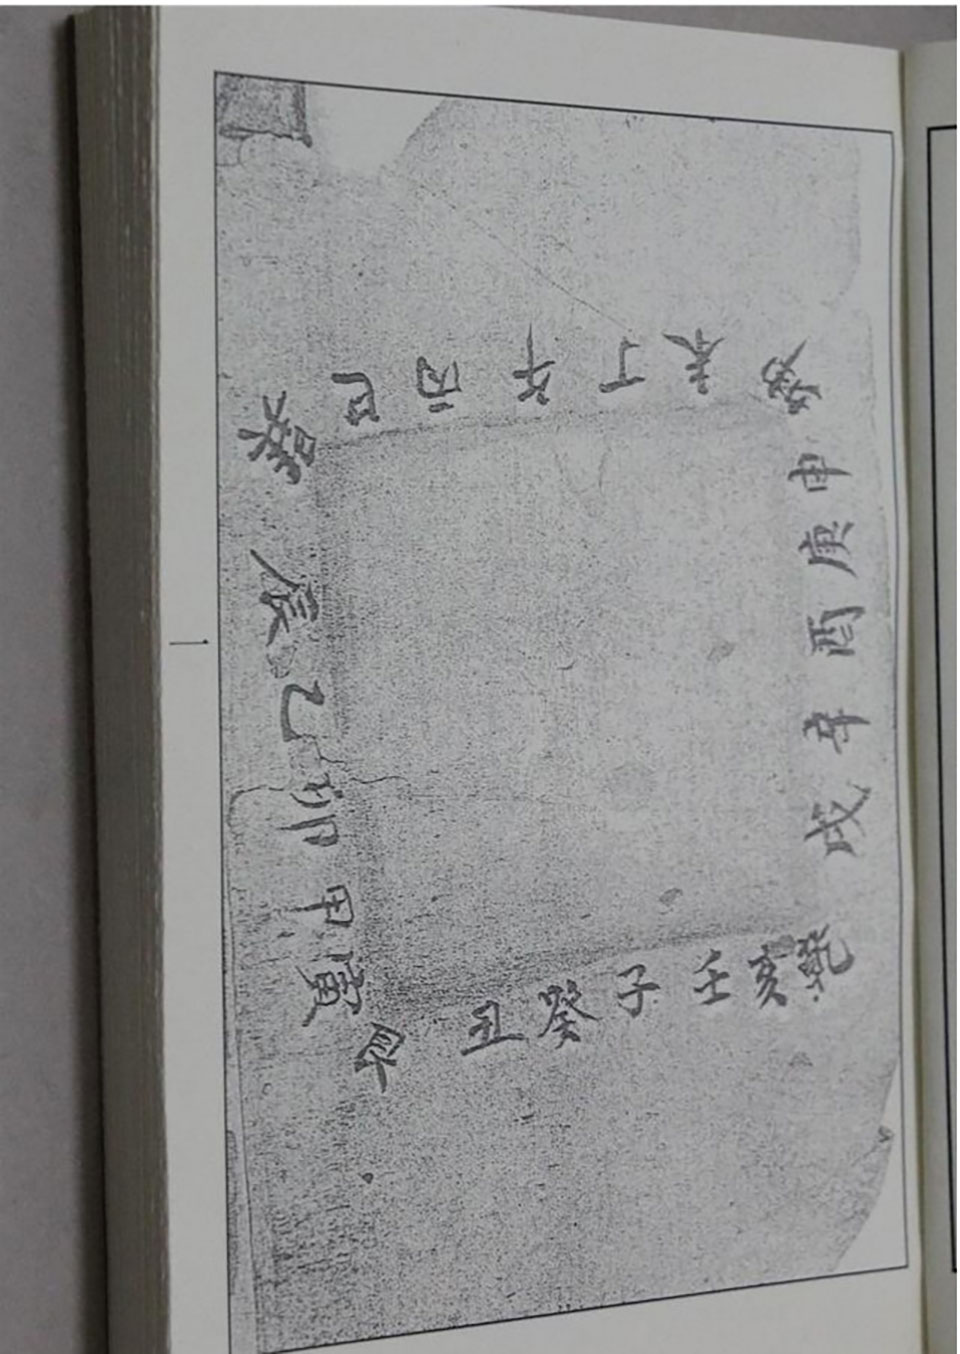 巽巳丙午丁未
申庚酉辛戌乾
亥壬子癸丑艮
寅甲卯乙辰
一